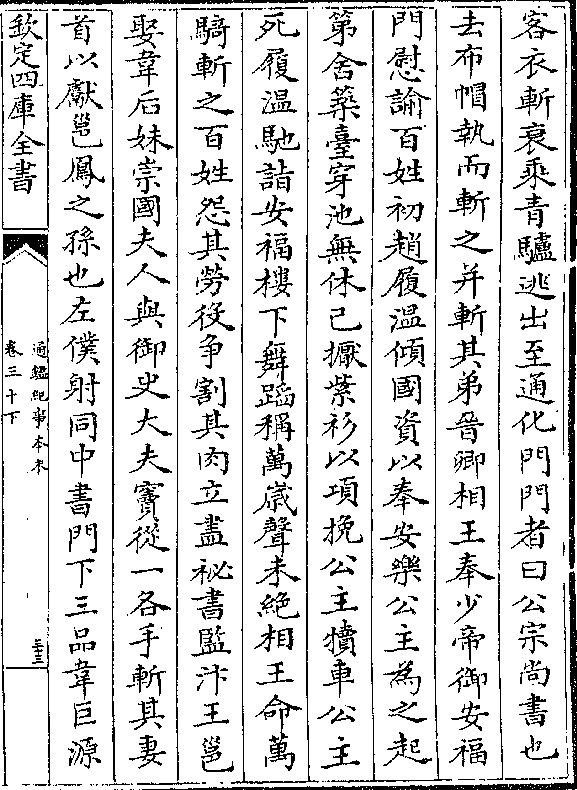 客衣斬衰乘青驢逃出至通化門門者曰公宗尚書也
去布帽執而斬之并斬其弟晉卿相王奉少帝御安福
門慰諭百姓初趙履溫傾國資以奉安樂公主為之起
第舍築臺穿池無休已擫紫衫以項挽公主犢車公主
死履溫馳詣安福樓下舞蹈稱萬歲聲未絶相王命萬
騎斬之百姓怨其勞役争割其肉立盡祕書監汴王邕
娶韋后妹崇國夫人與御史大夫竇從一各手斬其妻
首以獻邕鳳之孫也左僕射同中書門下三品韋巨源
欽定四庫全書
通鑑紀事本末
卷三十下
三十三